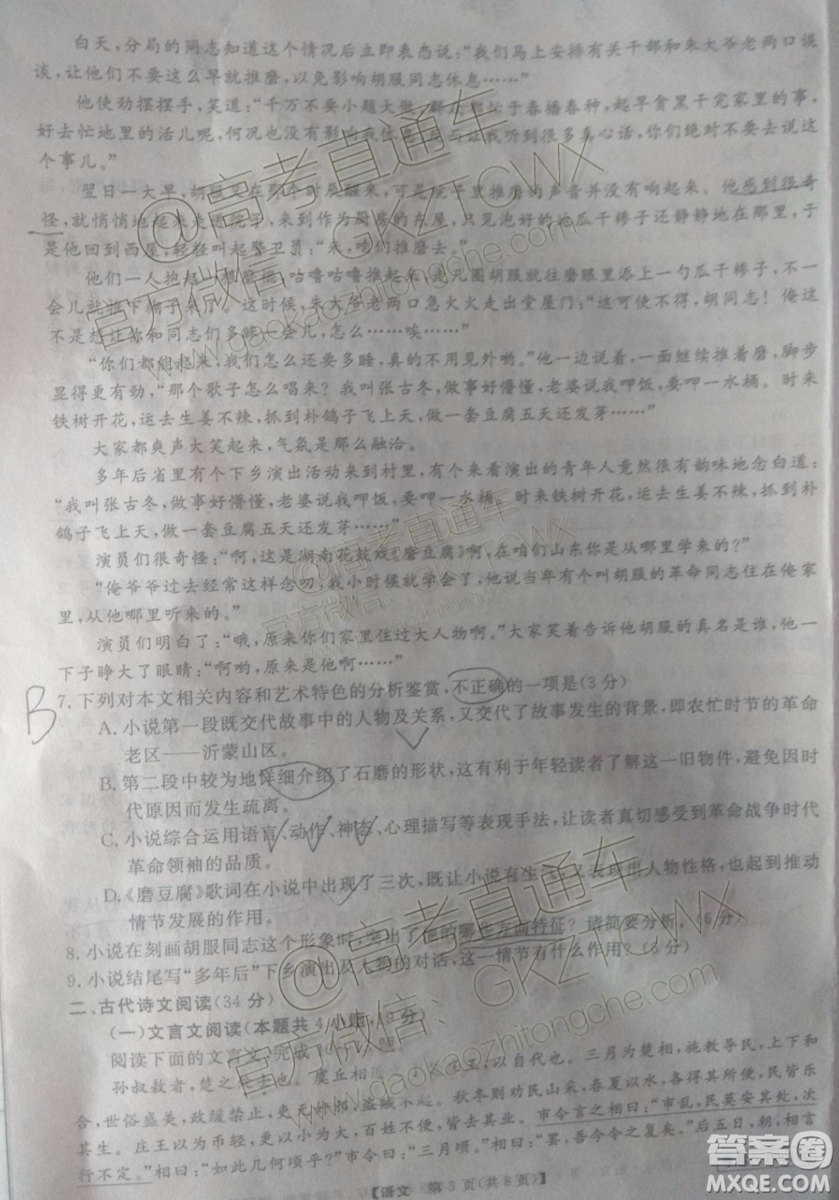 白天，分局的同志知道这个情况后立即表态说：“我们马上安排有关干部和朱大爷老两口谈
谈，让他们不要这么早就推磨，以免影响胡服同志休息……”
他使劲摆摆手，笑道：“千万不要小题大做！群众都忙于春播春种，起早贪黑干完家里的事，
好去忙地里的活儿呢，何况也没有影响我休息。而且这是很多真心话，你们绝对不要去说这
个事儿。”
翌日一大早，胡服又在那个时辰醒来，可是院子里推磨的声音并没有响起。他感到很奇
怪，就悄悄地起来走进院子，来到作为厨房的东屋，只见泡好的地瓜干棒子还静静地在那里，于
是他回到西屋，轻轻叫起警卫员：“来，咱们推磨去。”
他们一人抱棍，把磨，咕噜咕噜推起来，走几圈胡服往磨眼里添上一勺瓜干棒子，不一
会儿就推下糊子来了。这时候，朱大爷老两口急火火走出堂屋门：“这可使不得，胡同志！俺这
不是想让你和同志们多睡一会儿，怎么……唉……”
“你们都能起来，我们怎么还要多睡，真的不用见外哟。”他一边说着，一面继续推着磨，脚步
显得更有劲，“那个歌子怎么唱来？我叫张古冬，做事好懵懂，老婆说我呷饭，要呷一水桶。时来
铁树开花，运去生姜不辣，抓到朴鸽子飞上天，做一套豆腐五天还发芽……”
大家都爽声大笑起来，气氛是那么融洽。
多年后省里有个下乡演出活动来到村里，有个来看演出的青年人竟然很有韵味地念白道：
“我叫张古冬，做事好懵懂，老婆说我呷饭，要呷一水桶。时来铁树开花，运去生姜不辣，抓到朴
鸽子飞上天，做一套豆腐五天还发芽……”
演员们很奇怪：“啊，这是湖南花鼓戏《磨豆腐》啊，在咱们山东你是从哪里学来的？”
“俺爷爷过去经常这样念念，我小时候就学会了，他说当年有个叫胡服的革命同志住在俺家
里，从他那里听来的。”
演员们明白了：“哦，原来你们家里住过大人物啊。”大家笑着告诉他胡服的真名是谁，他一
下子睁大了眼睛：“啊哟，原来是他啊……”
B
7.下列对本文相关内容和艺术特色的分析鉴赏，不正确的一项是(3分)
A.小说第一段既交代故事中的人物及关系，又交代了故事发生的背景，即农忙时节的革命
老区——沂蒙山区。
B.第二段中较为地详细介绍了石磨的形状，这有利于年轻读者了解这一旧物件，避免因时
代原因而发生疏离。
C.小说综合运用语言、动作、神态、心理描写等表现手法，让读者感受到革命战争时代
革命领袖的品质。
D.《磨豆腐》歌词在小说中出现了三次，既具有生活气息，又表现出人物性格，也起到推动
情节发展的作用。
8.小说在刻画胡服同志这个形象时，突出了他的哪些方面特征？请简要分析。(6分)
9.小说结尾写“多年后”下乡演出及人物的对话，这一情节有什么作用？(6分)
二、古代诗文阅读(34分)
(一)文言文阅读(本题共4小题，19分)
阅读下面的文言文，完成10～13题。
孙叔敖者，楚之处士也。虞丘相进之于楚庄王，以自代也。三月为楚相，施教导民，上下和
合，世俗盛美，政缓禁止，吏无奸邪，盗贼不起。秋冬则劝民山采，春夏以水，各得其所便，民皆乐
其生。庄王以为币轻，更以小为大，百姓不便，皆去其业。市令言之相曰：“市乱，民莫安其处，次
行不定。”相曰：“如此几何顷乎？”市令曰：“三月顷。”相曰：“罢，吾今令之复矣。”后五日，朝，相言
【语文 第5页(共8页)】
@高考直通车
官方微信：GKZTCWX
www.gaokaozhitongche.com
答案圈
MXQE.COM